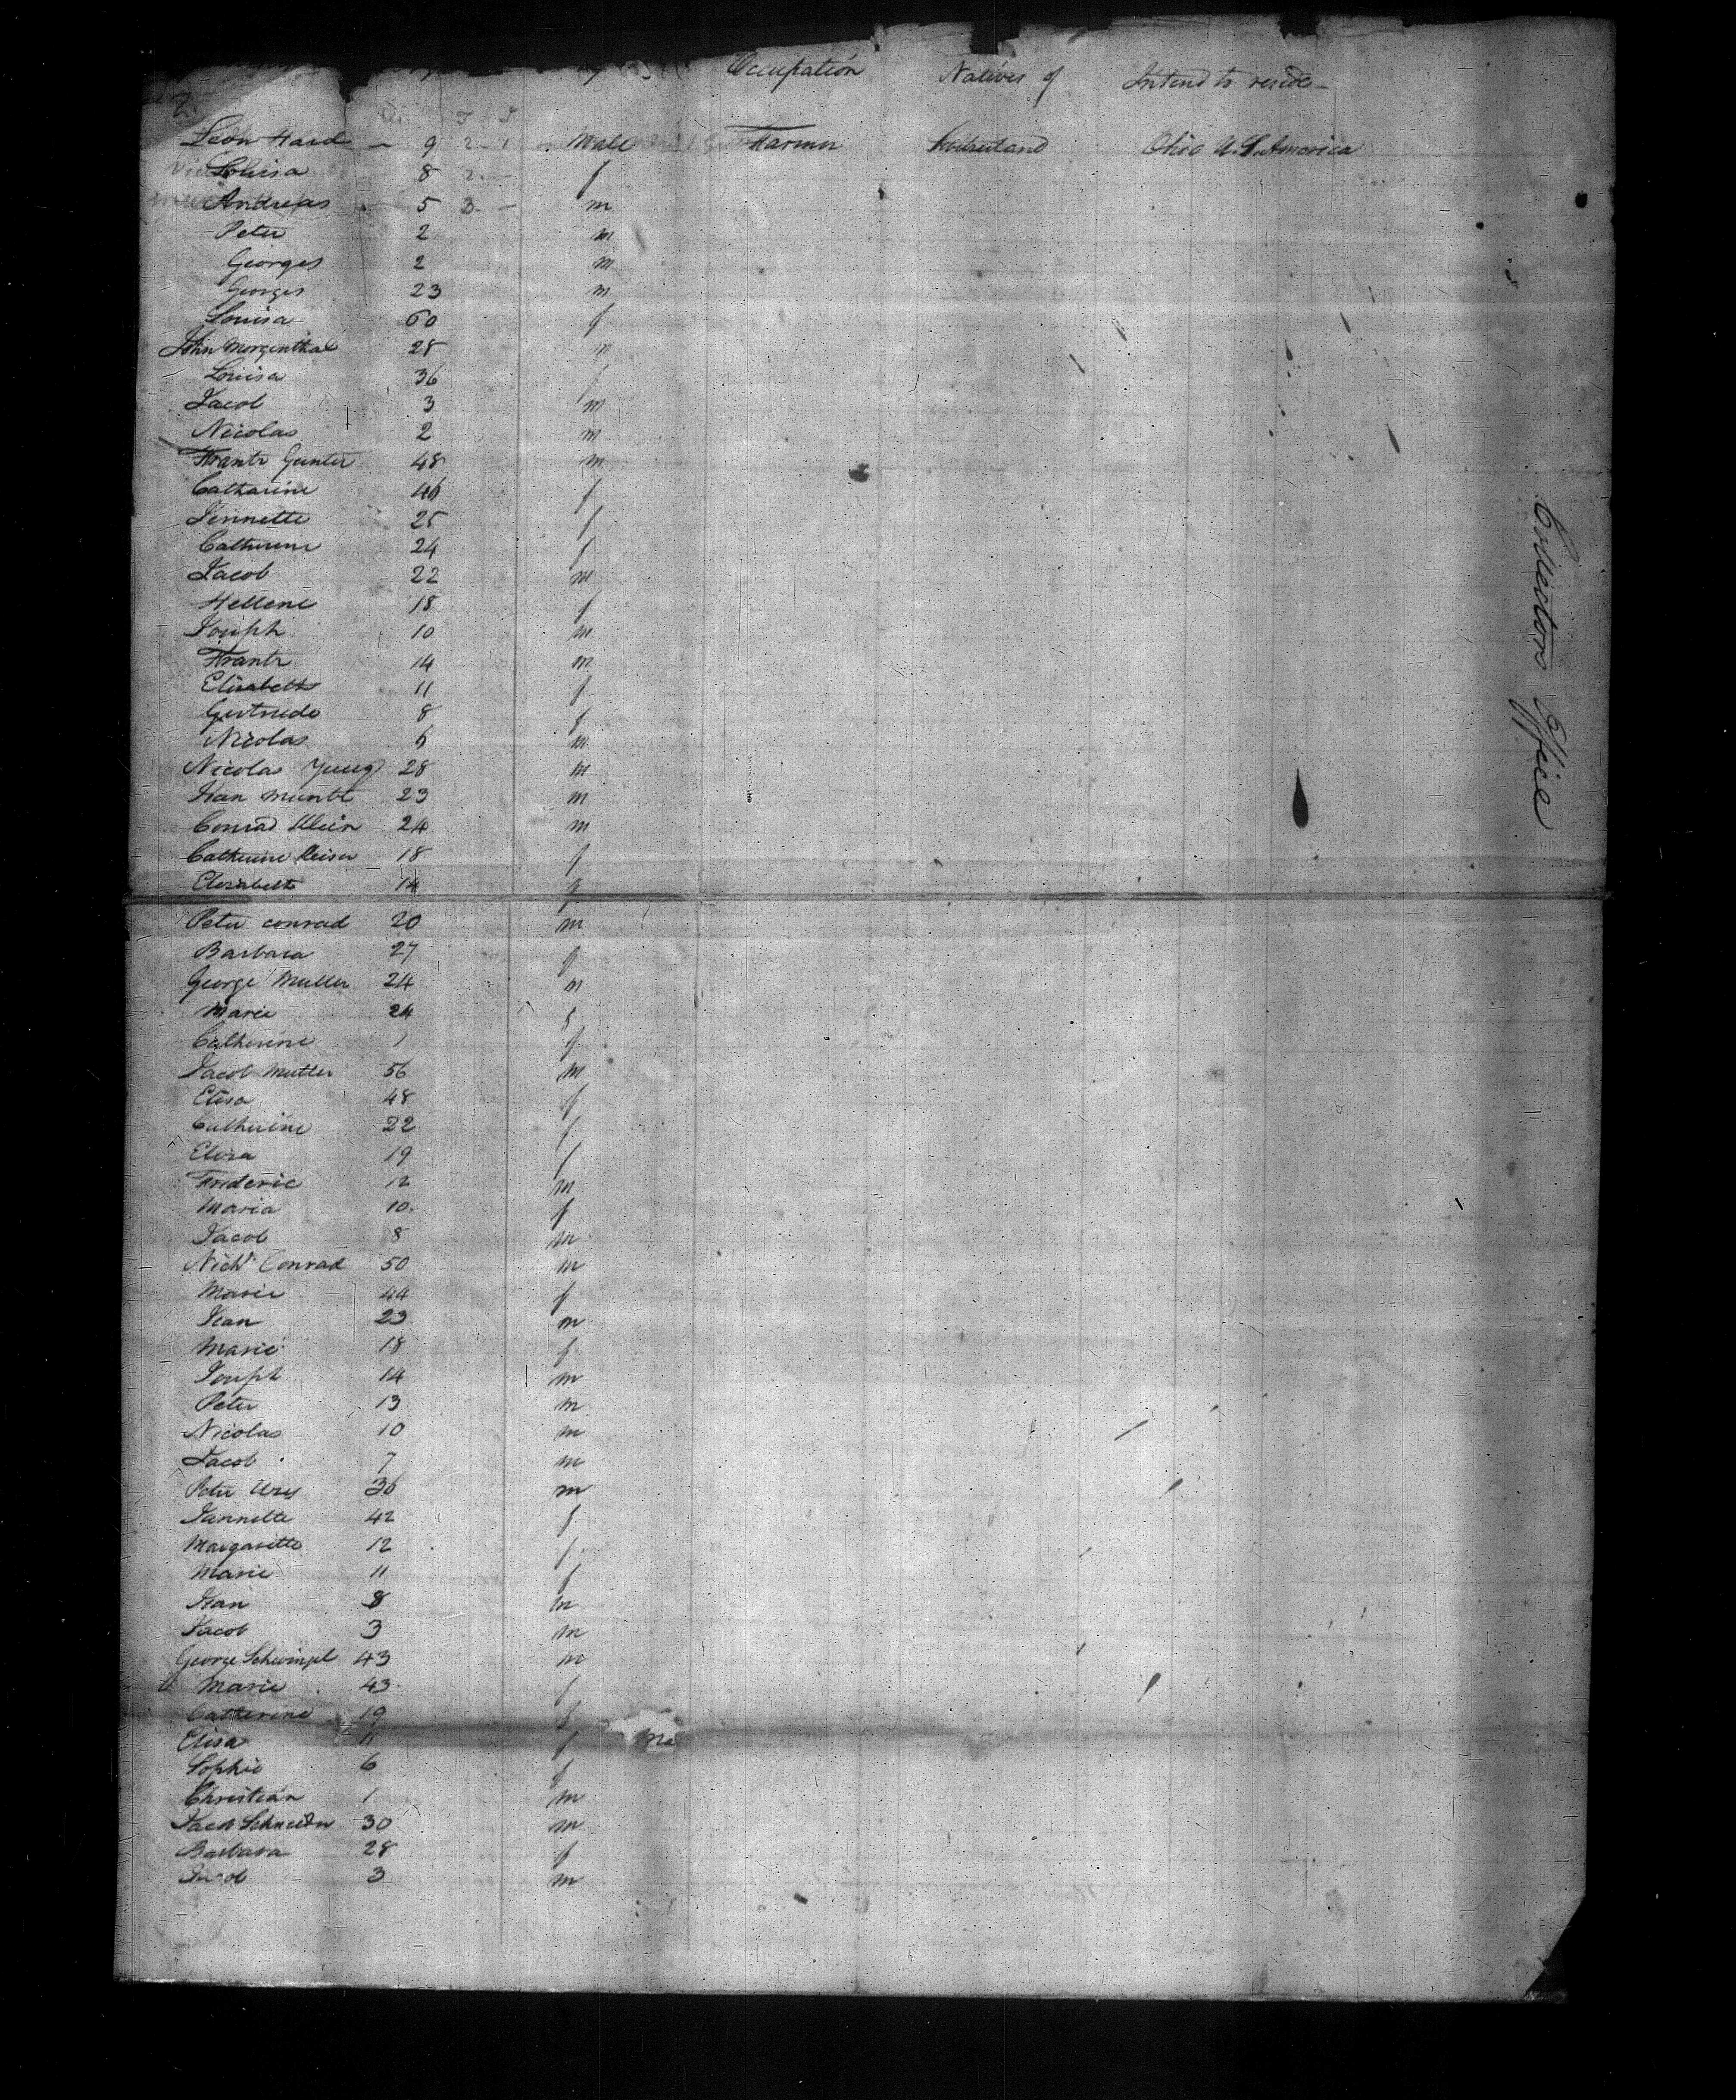 Occupation Natives of Intend to reside
2.
Leon Hard 9 Male Farmer Switzerland Ohio U.S. America
Louisa 8 f
Andreas 5 m
Peter 2 m
Georges 2 m
Georges 23 m
Louisa 60 f
John Morgenthal 28 m
Louisa 36 f
Jacob 3 m
Nicolas 2 m
Frantz Gunter 48 m
Catharine 46 f
Jennette 25 f
Catherine 24 f
Jacob 22 m
Hellene 18 f
Joseph 10 m
Frantz 14 m
Elizabeth 11 f
Gertrude 8 f
Nicolas 6 m
Nicolas Jung 28 m
Jean 23 m
Conrad Klein 24 m
Catherine 18 f
Elizabeth 14 f
Peter conrad 20 m
Barbara 27 f
George Muller 24 m
Marie 24 f
Catherine 1 f
Jacob Muller 56 m
Elisa 48 f
Catherine 22 f
Eliza 19 f
Frideric 12 m
Maria 10 f
Jacob 8 m
Conrad 50 m
Marie 44 f
Jean 23 m
Marie 18 f
Joseph 14 m
Peter 13 m
Nicolas 10 m
Jacob 7 m
Peter 36 m
Jannette 42 f
Margaritte 12 f
Marie 11 f
Jean 8 m
Jacob 3 m
George Schwingel 43 m
Marie 43 f
Catherine 19 f
Elisa 11 f
Sophie 6 f
Christian 1 m
Jacob Schneider 30 m
Barbara 28 f
Jacob 3 m
Collectors Office